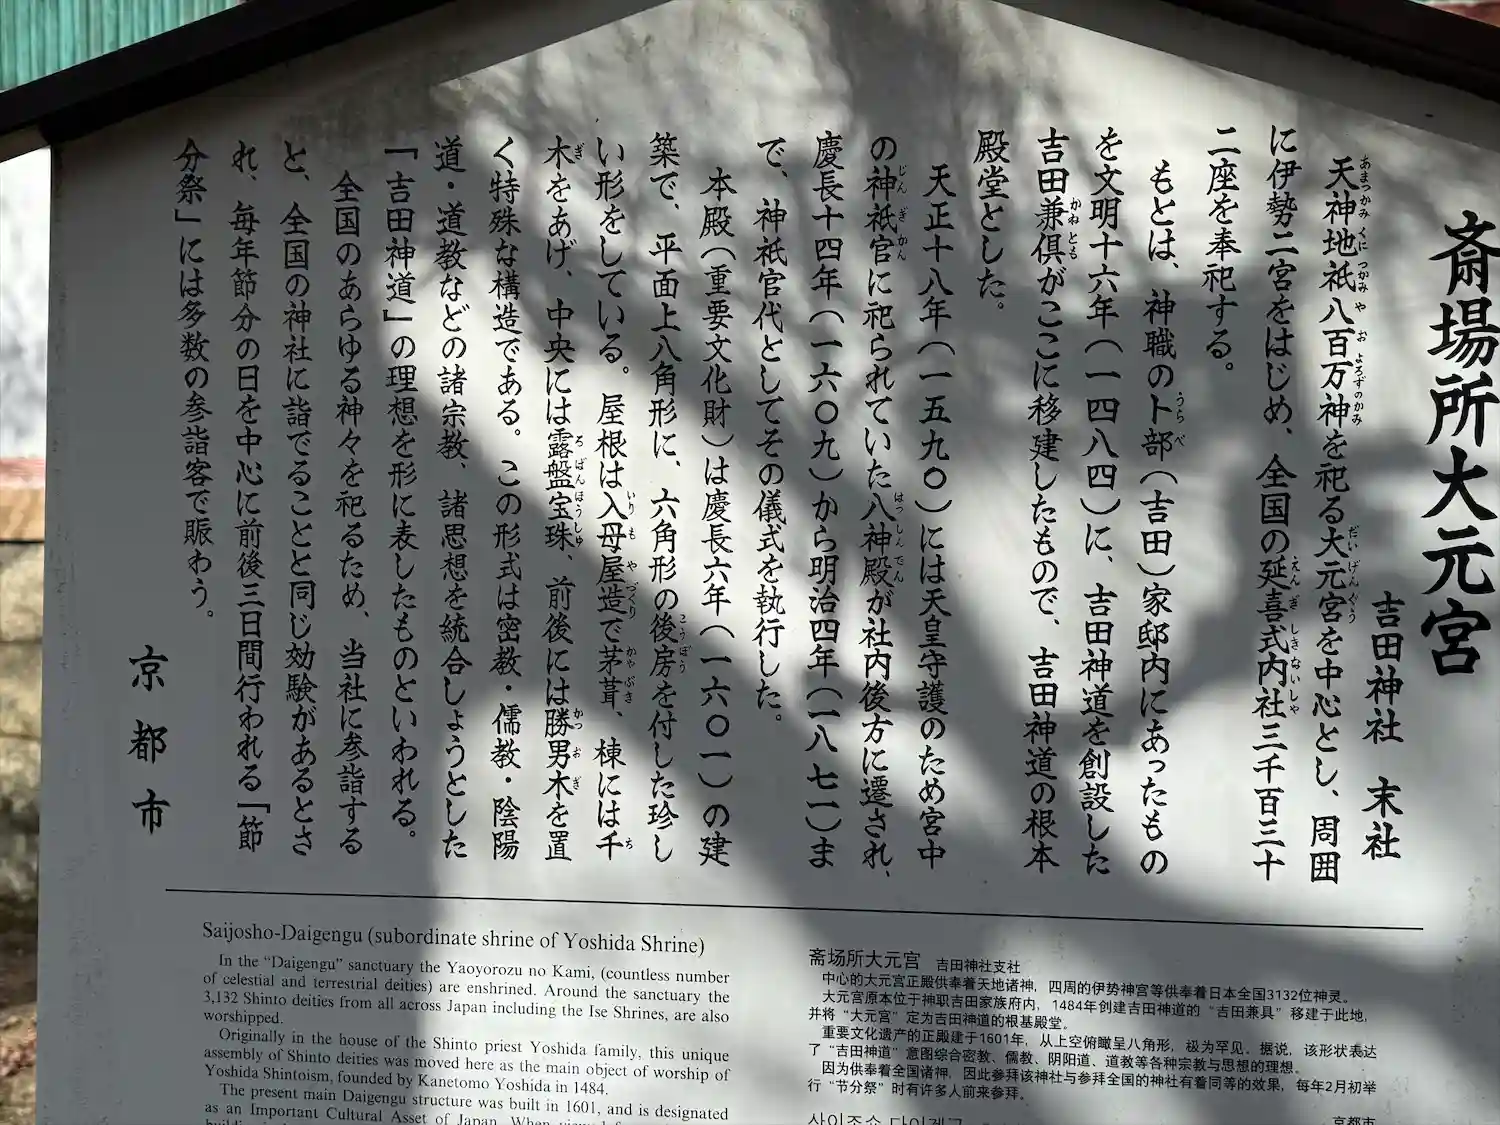 斎場所大元宮
吉田神社 末社
天神地祇八百万神を祀る大元宮を中心とし、周囲
に伊勢二宮をはじめ、全国の延喜式内社三千百三十
二座を奉祀する。
もとは、神職の卜部(吉田)家邸内にあったもの
を文明十六年(一四八四)に、吉田神道を創設した
吉田兼倶がここに移建したもので、吉田神道の根本
殿堂とした。
天正十八年(一五九〇)には天皇守護のため宮中
の神祇官に祀られていた八神殿が社内後方に遷され、
慶長十四年(一六〇九)から明治四年(一八七一)ま
で、神祇官代としてその儀式を執行した。
本殿(重要文化財)は慶長六年(一六〇一)の建
築で、平面上八角形に、六角形の後房を付した珍し
い形をしている。屋根は入母屋造で茅葺、棟には千
木をあげ、中央には露盤宝珠、前後には勝男木を置
く特殊な構造である。この形式は密教・儒教・陰陽
道・道教などの諸宗教、諸思想を統合しようとした
「吉田神道」の理想を形に表したものといわれる。
全国のあらゆる神々を祀るため、当社に参詣する
と、全国の神社に詣でることと同じ効験があるとさ
れ、毎年節分の日を中心に前後三日間行われる「節
分祭」には多数の参詣客で賑わう。
京都市
Saijosho-Daigengu (subordinate shrine of Yoshida Shrine)
In the “Daigengu” sanctuary the Yaoyorozu no Kami, (countless number
of celestial and terrestrial deities) are enshrined. Around the sanctuary the
3,132 Shinto deities from all across Japan including the Ise Shrines, are also
worshipped.
Originally in the house of the Shinto priest Yoshida family, this unique
assembly of Shinto deities was moved here as the main object of worship of
Yoshida Shintoism, founded by Kanetomo Yoshida in 1484.
The present main Daigengu structure was built in 1601, and is designated
as an Important Cultural Asset of Japan. When viewed
斋场所大元宫 吉田神社支社
中心的大元宫正殿供奉着天地诸神，四周的伊势神宫等供奉着日本全国3132位神灵。
大元宫原本位于神职吉田家族府内，1484年创建吉田神道的“吉田兼具”移建于此地，
并将“大元宫”定为吉田神道的根基殿堂。
重要文化遗产的正殿建于1601年，从上空俯瞰呈八角形，极为罕见。据说，该形状表达
了“吉田神道”意图综合密教、儒教、阴阳道、道教等各种宗教与思想的理想。
因为供奉着全国诸神，因此参拜该神社与参拜全国的神社有着同等的效果，每年2月初举
行“节分祭”时有许多人前来参拜。
京都市